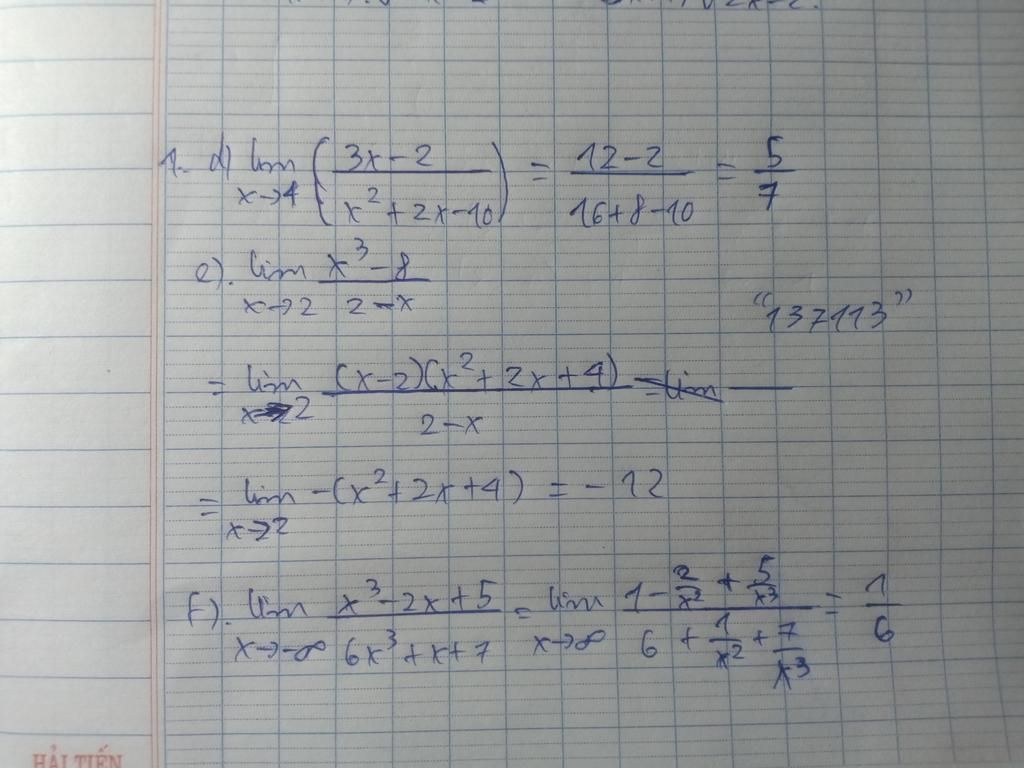 1. d) lim x→4 (3x-2 / x²+2x-10) = 12-2 / 16+8-10 = 5/7
e). lim x→2 x³-8 / 2-x
"137113"
= lim x→2 (x-2)(x²+2x+4) / 2-x = lim
= lim x→2 -(x²+2x+4) = -12
f). lim x→-∞ x³-2x+5 / 6x³+x+7 = lim x→∞ 1-2/x²+5/x³ / 6+1/x²+7/x³ = 1/6
HẢI TIẾN